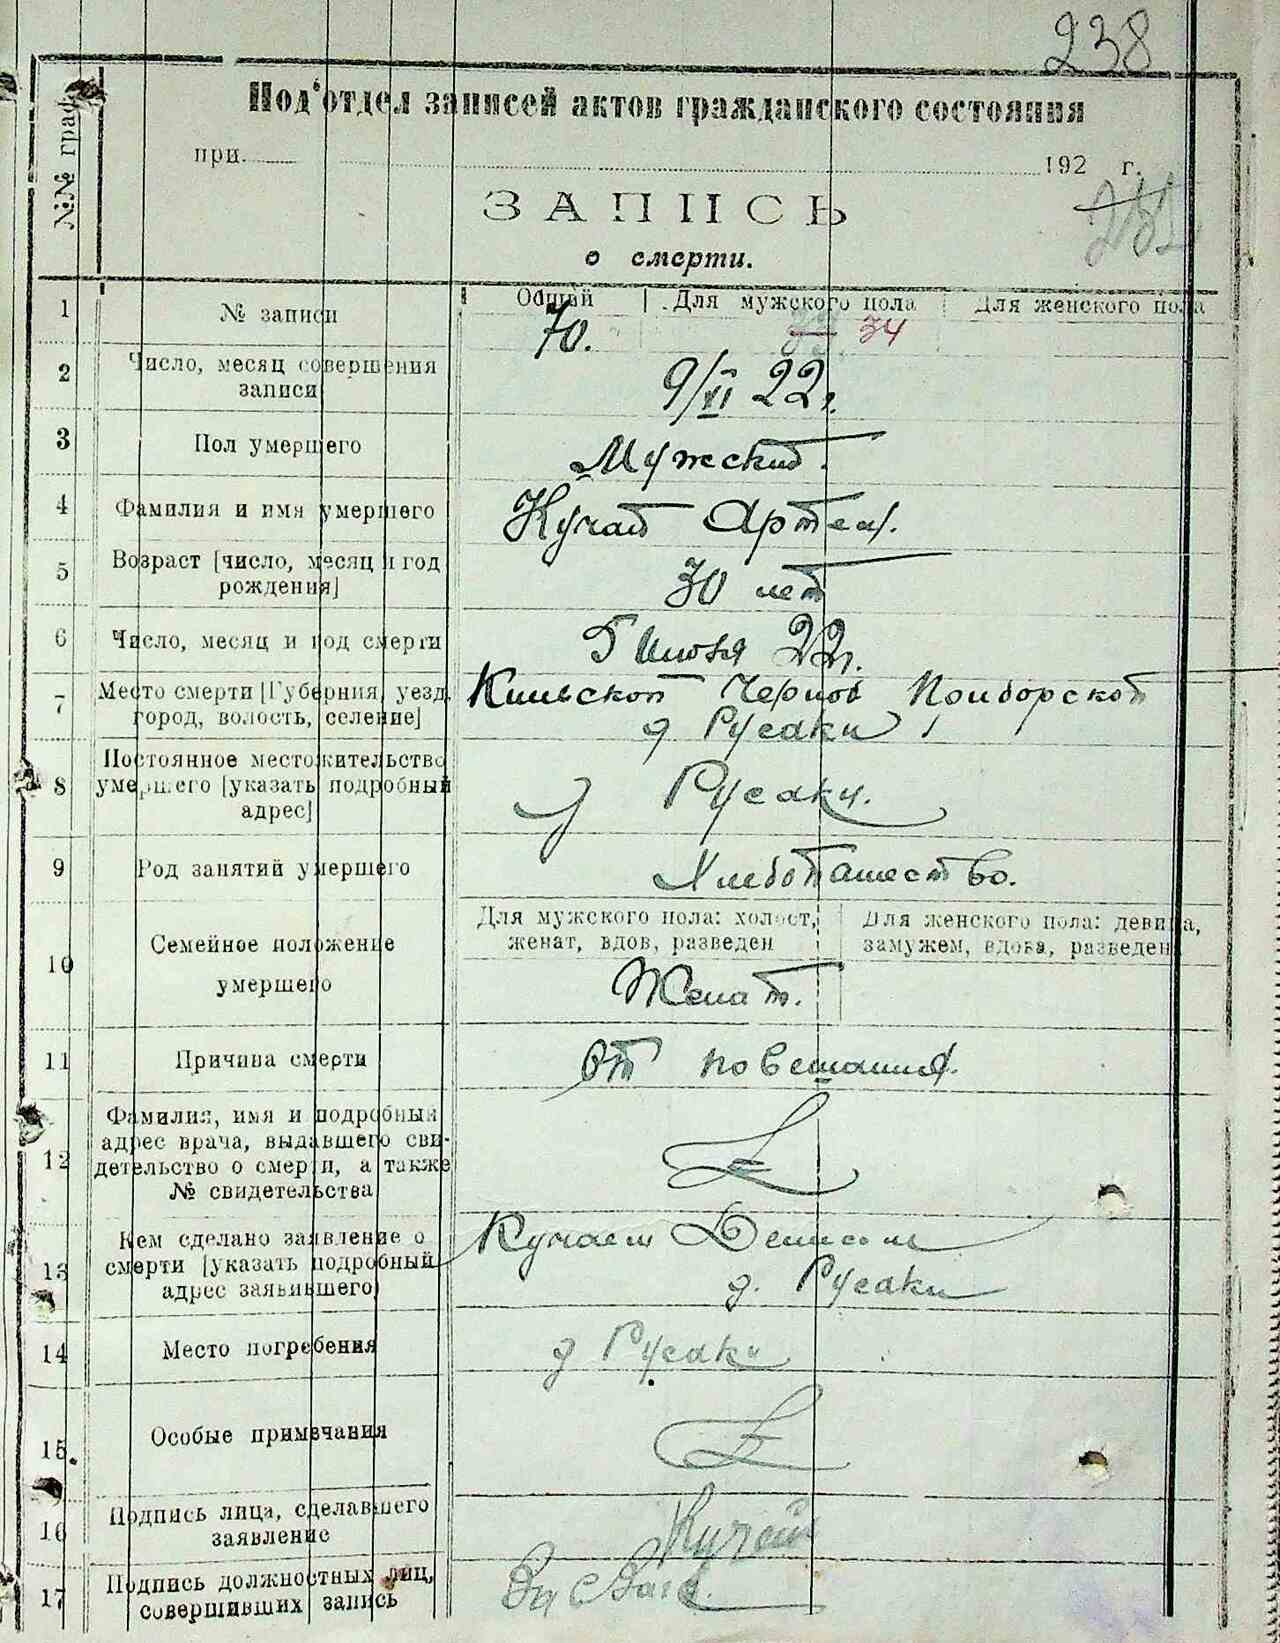 238
Под'отдел записей актов гражданского состояния
№№ граф
при 192 г.
ЗАПИСЬ
о смерти.
1 № записи Общий Для мужского пола Для женского пола
70. 34
2 Число, месяц совершения записи
9/VI 22г.
3 Пол умершего Мужской.
4 Фамилия и имя умершего Кучай Артем.
5 Возраст [число, месяц и год
рождения] 30 лет
6 Число, месяц и год смерти 5 Июня 22г.
7 Место смерти [Губерния, уезд,
город, волость, селение]
Чернов Приборской
д Русаки
8 Постоянное местожительство
умершего [указать подробный
адрес]
д Русаки.
9 Род занятий умершего Хлебопашество.
10 Семейное положение
умершего
Для мужского пола: холост,
женат, вдов, разведен
Для женского пола: девица,
замужем, вдова, разведен
Женат.
11 Причина смерти от повешания.
12 Фамилия, имя и подробный
адрес врача, выдавшего сви-
детельство о смерти, а также
№ свидетельства
13 Кем сделано заявление о
смерти [указать подробный
адрес заявившего]
Кучаем Денисом
д. Русаки
14 Место погребения д Русаки
15. Особые примечания
16 Подпись лица, сделавшего
заявление
Кучай
17 Подпись должностных лиц,
совершивших запись